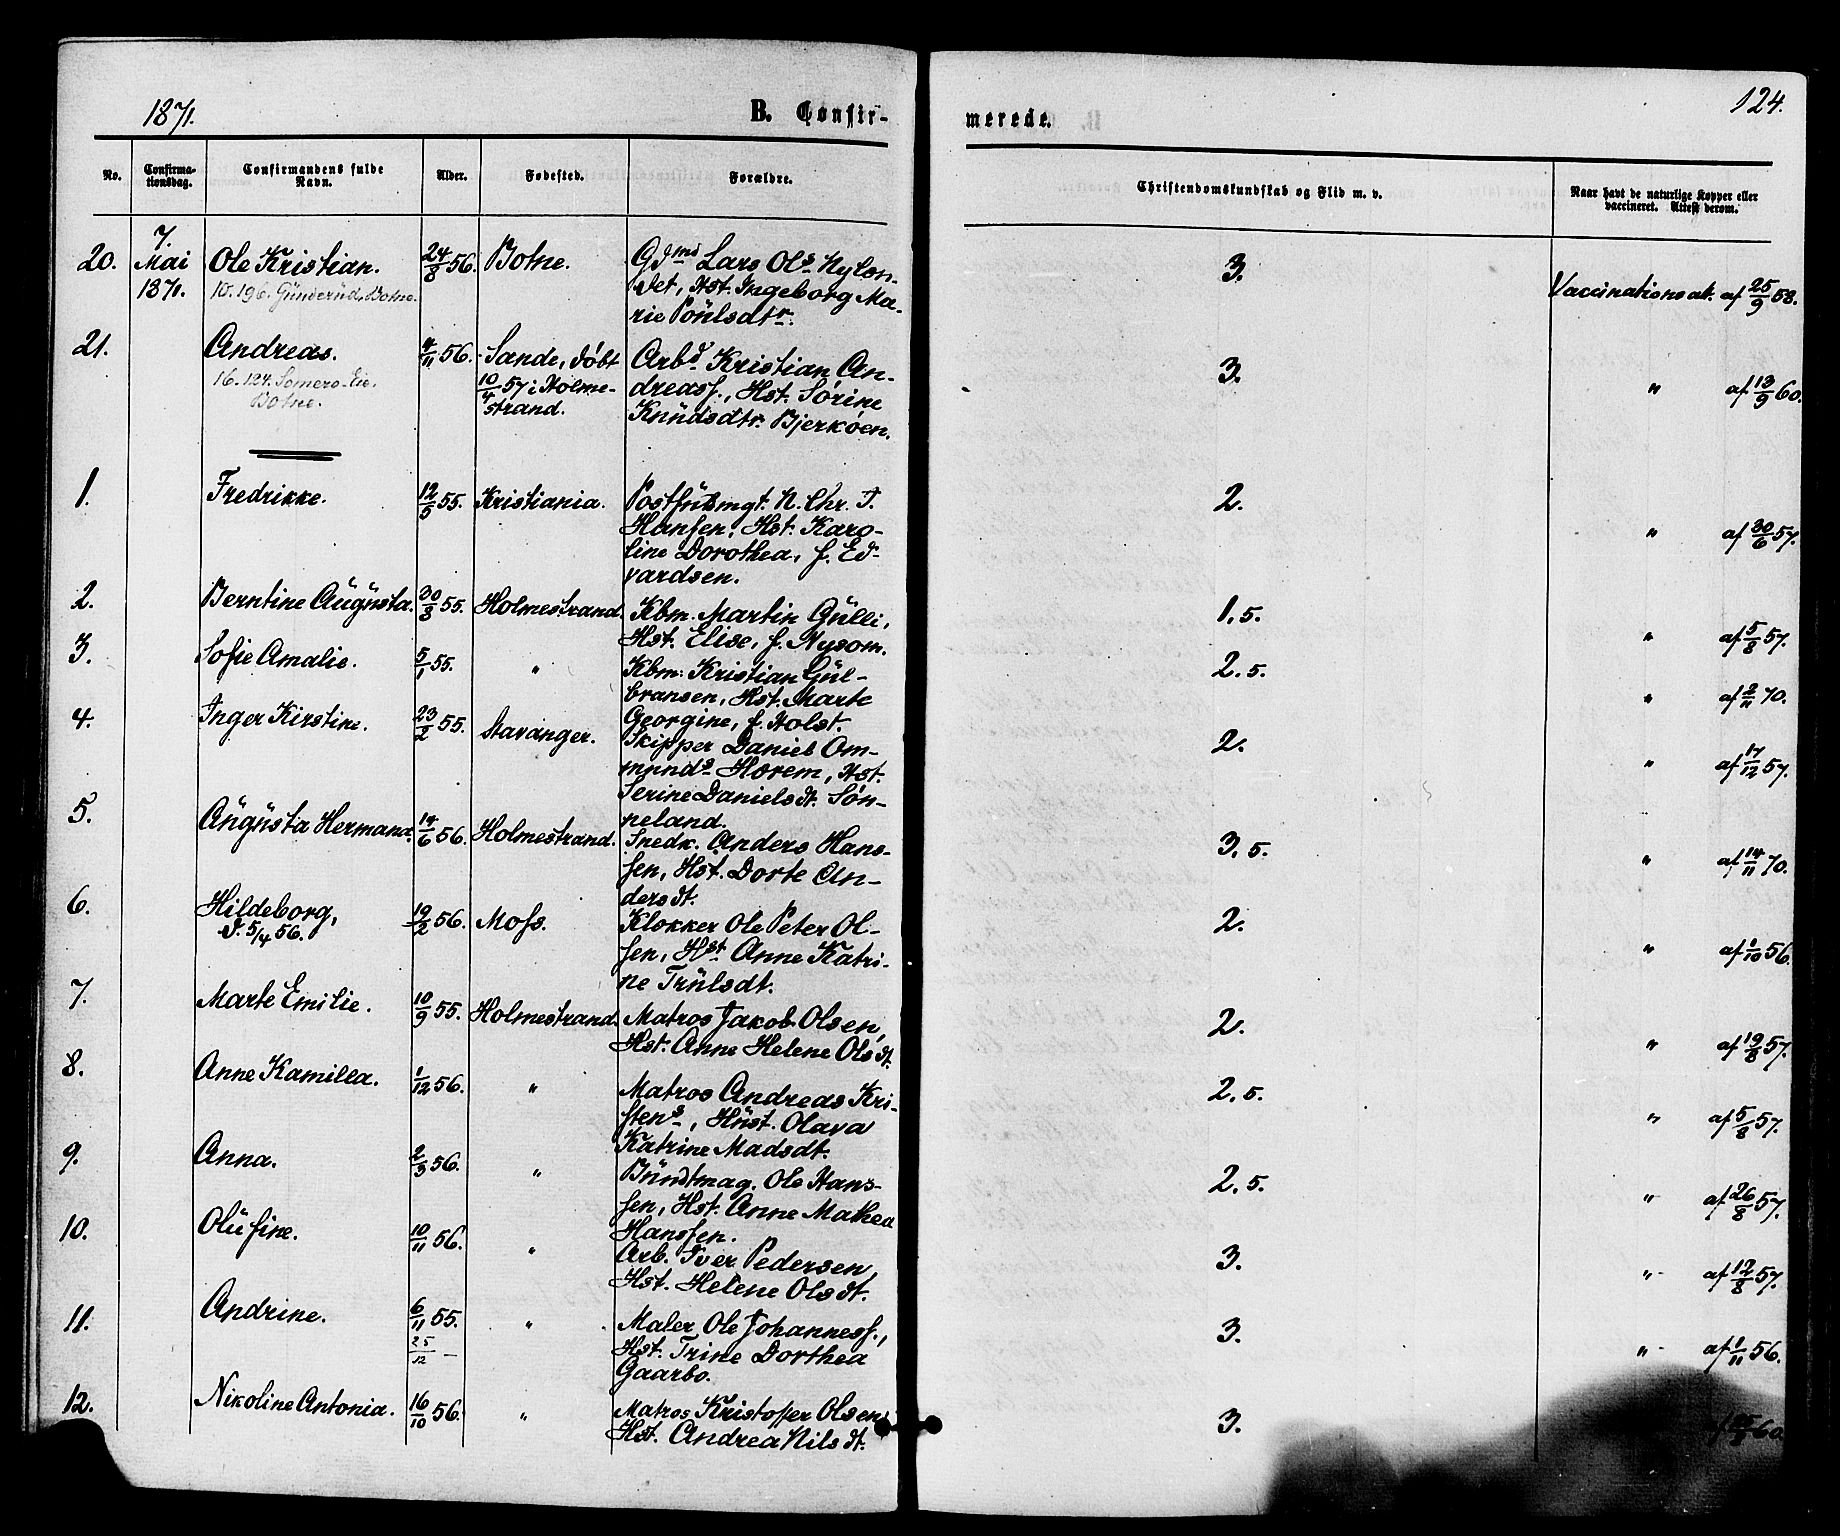 1871.
B. Confir-
merede.
124.
No.
Confirma-
tionsdag.
Confirmandens fulde
Navn.
Alder.
Fødested.
Forældre.
Christendomskundskab og Flid m. v.
Naar havt de naturlige Kopper eller
vaccineret. Attest derom.
20.
7.
Mai
1871.
Ole Kristian.
10. 196. Günderüd, Botne.
24/8 56.
Botne.
Gdmd Lars Ols. Nylon-
det, Hst. Ingeborg Ma-
rie Poülsdtr.
3.
Vaccinationsatt. af 25/9 58.
21.
Andreas.
16. 124. Somero-Eie,
Botne.
4/11 56.
Sande, døbt
10/4 57 i Holme-
strand.
Arbd. Kristian An-
dreasf., Hst. Sørine
Knüdsdtr. Bjerkøen.
3.
" af 13/9 60.
1.
Fredrikke.
12/5 55.
Kristiania.
Postfüldmgt. N. Chr. T.
Hansen, Hst. Karo-
line Dorothea, f. Ed-
vardsen.
2.
" af 30/6 57.
2.
Berntine Aügüsta.
30/8 55.
Holmestrand.
Kbm. Martin Gülli,
Hst. Elise, f. Nysom.
1,5.
" af 5/8 57.
3.
Sofie Amalie.
5/1 55.
"
Kbm: Kristian Gül-
bransen, Hst. Marte
Georgine, f. Holst.
2,5.
" af 2/11 70.
4.
Inger Kirstine.
23/2 55.
Stavanger.
Skipper Daniel Om-
münds. Hærem, Hst.
Serine Danielsdt. Søn-
neland.
2.
" af 17/12 57.
5.
Aügüsta Hermana.
14/6 56.
Holmestrand.
Snedk. Anders Hans-
sen, Hst. Dorte An-
dersdt.
3,5.
" af 14/11 70.
6.
Hildeborg,
d. 5/4 56.
19/2 56.
Moss.
Klokker Ole Peter Ol-
sen, Hst. Anne Katri-
ne Trülsdt.
2.
" af 1/10 56.
7.
Marte Emilie.
10/9 55.
Holmestrand.
Matros Jakob Olsen,
Hst. Anne Helene Olsdt.
2.
" af 19/8 57.
8.
Anne Kamilla.
1/12 56.
"
Matros Andreas Kri-
stens., Hüst. Olava
Katrine Madsdt.
2,5.
" af 5/8 57.
9.
Anna.
2/3 56.
"
Bündtmag. Ole Hans-
sen, Hst. Anne Mathea
Hanssen.
2,5.
" af 26/8 57.
10.
Olüfine.
10/11 56.
"
Arb. Iver Pedersen,
Hst. Helene Olsdt.
3.
" af 12/8 57.
11.
Andrine.
6/11 55.
25/12 —
"
Maler Ole Johannesf.,
Hst. Trine Dorthea
Gaarbo.
3.
" af 1/11 56.
12.
Nikoline Antonia.
16/10 56.
"
Matros Kristoffer Olsen,
Hst. Andrea Nilsdt.
3.
60.